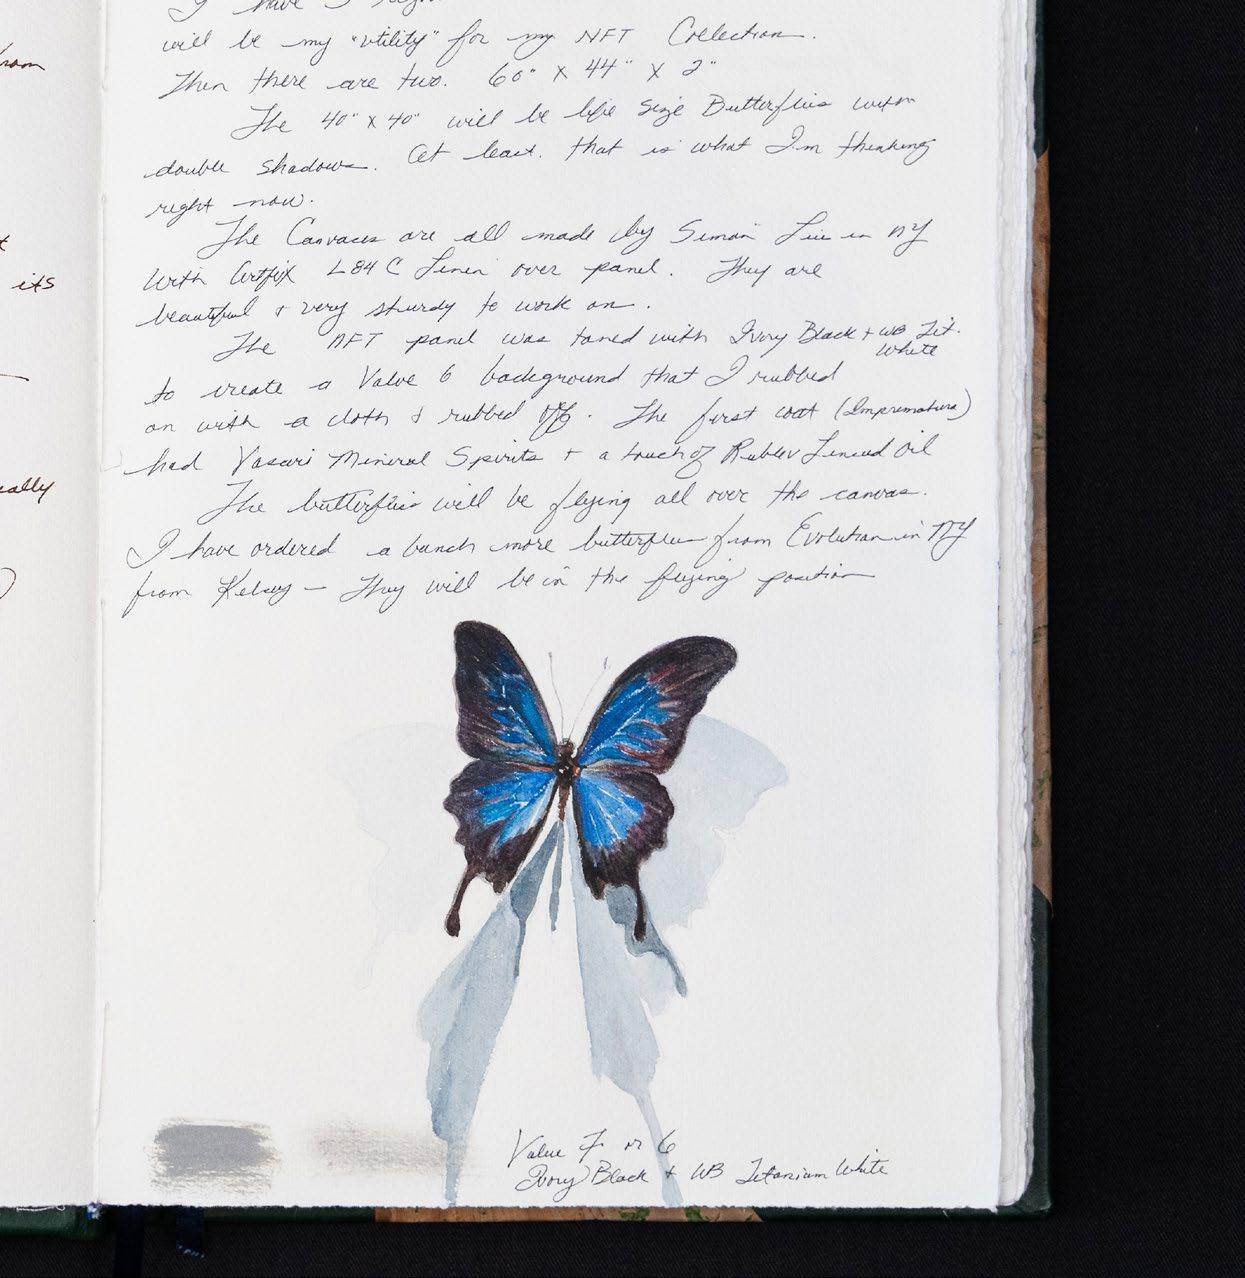 I have
will be my "utility" for my NFT Collection.
Then there are two. 60" X 44" X 2"
The 40" x 40" will be life size Butterflies with
double shadows. At least, that is what I'm thinking
right now.
The Canvases are all made by Simon Liu in NY
With Artfix L84C Linen over panel. They are
beautiful + very sturdy to work on.
The NFT panel was toned with Ivory Black + WB Tit.
White
to create a Value 6 background that I rubbed
on with a cloth & rubbed off. The first coat (Imprimatura)
had Vasari Mineral Spirits + a touch of Rublev Linseed Oil
The butterflies will be flying all over the canvas.
I have ordered a bunch more butterflies from Evolution in NY
from Kelsey — They will be in the flying position
Value 7 or 6
Ivory Black + WB Titanium White
its